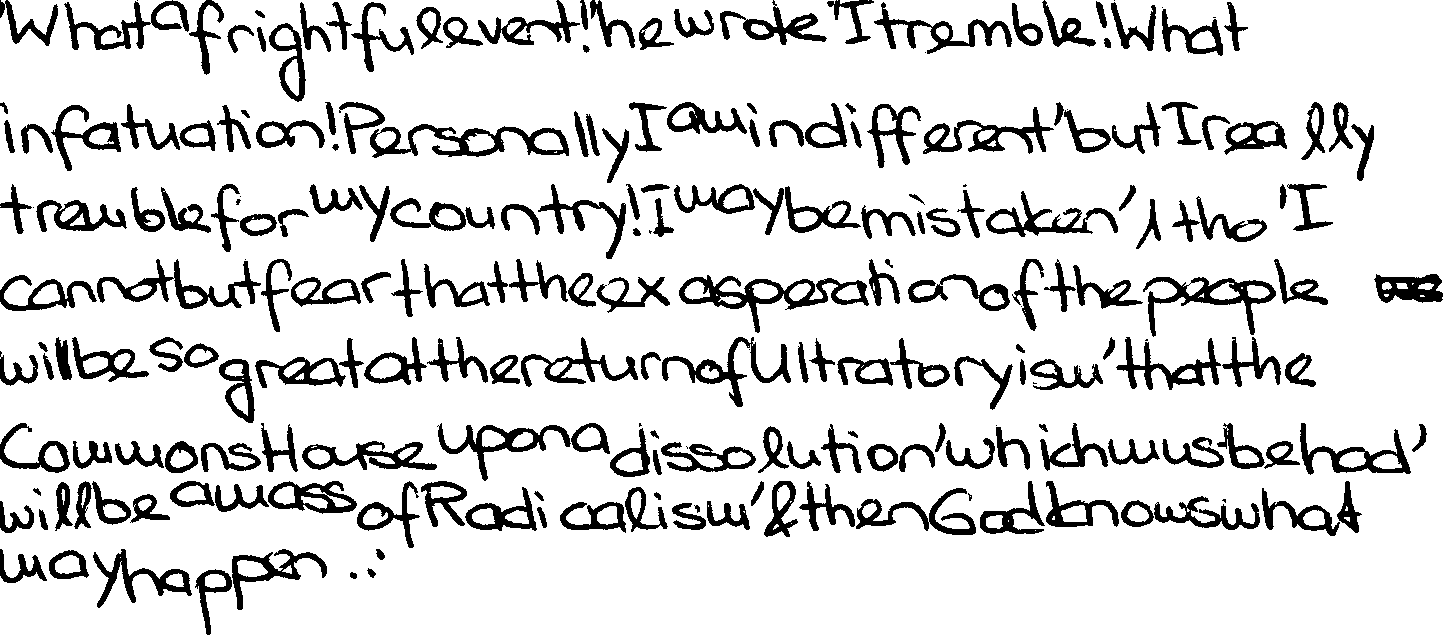 "What a frightful event!" he wrote "I tremble! What
infatuation! Personally I am indifferent, but I really
tremble for my country! I may be mistaken, & tho' I
cannot but fear that the exasperation of the people
will be so great at the return of Ultratoryism, that the
Commons House upon a dissolution, which must be had,
will be a mass of Radicalism, & then God knows what
may happen . ."